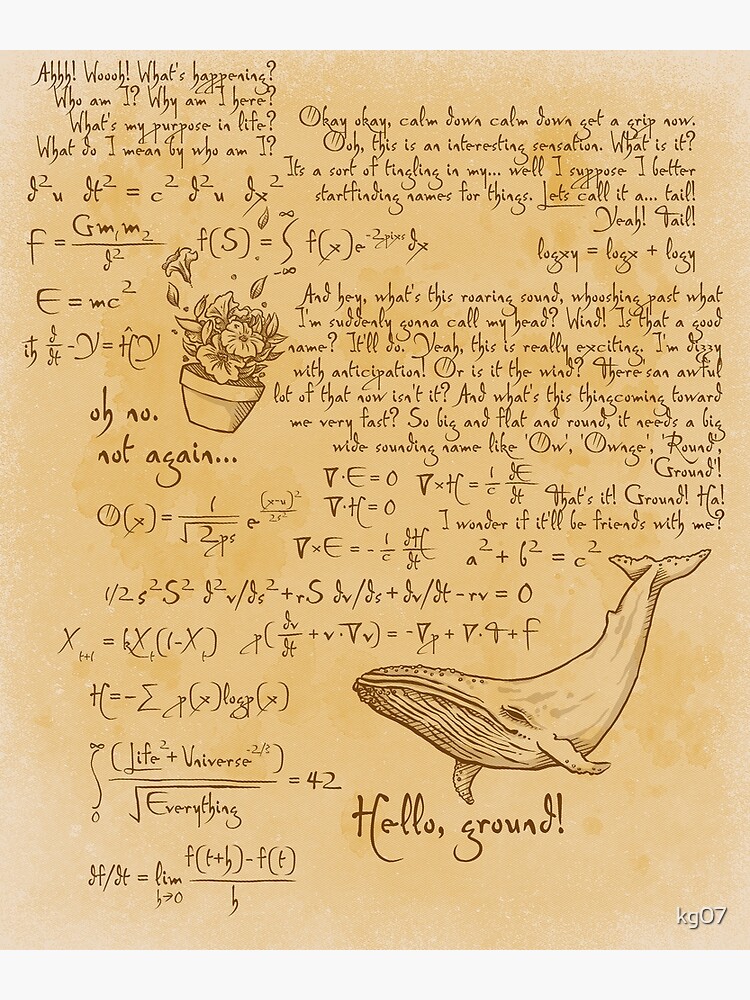 Ahhh! Woooh! What's happening?
Who am I? Why am I here?
What's my purpose in life?
What do I mean by who am I?
Okay okay, calm down calm down get a grip now.
Ooh, this is an interesting sensation. What is it?
Its a sort of tingling in my... well I suppose I better
startfinding names for things. Lets call it a... tail!
Yeah! Tail!
d²u dt² = c² d²u dx²
F = Gm₁m₂ / d²
f(S) = ∫_{-∞}^{∞} f(x)e^{-2pixs}dx
logxy = logx + logy
E = mc²
iħ d/dt Ψ = ĤΨ
And hey, what's this roaring sound, whooshing past what
I'm suddenly gonna call my head? Wind! Is that a good
name? It'll do. Yeah, this is really exciting. I'm dizzy
with anticipation! Or is it the wind? There'san awful
lot of that now isn't it? And what's this thingcoming toward
me very fast? So big and flat and round, it needs a big
wide sounding name like 'Ow', 'Ownge', 'Round',
'Ground'!
That's it! Ground! Ha!
I wonder if it'll be friends with me?
oh no.
not again...
∇·E = 0
∇×H = 1/c dE/dt
∇·H = 0
∇×E = -1/c dH/dt
a² + b² = c²
O(x) = 1/√2ps e^{(x-u)²/2s²}
1/2 s²S² d²v/ds² + rS dv/ds + dv/dt - rv = 0
X_{t+1} = kX_t(1-X_t)
p(dv/dt + v·∇v) = -∇p + ∇·T + f
H = -∑ p(x)logp(x)
∫_0^∞ (Life² + Universe^{-2/3}) / √Everything = 42
Hello, ground!
df/dt = lim_{h→0} f(t+h)-f(t) / h
kg07